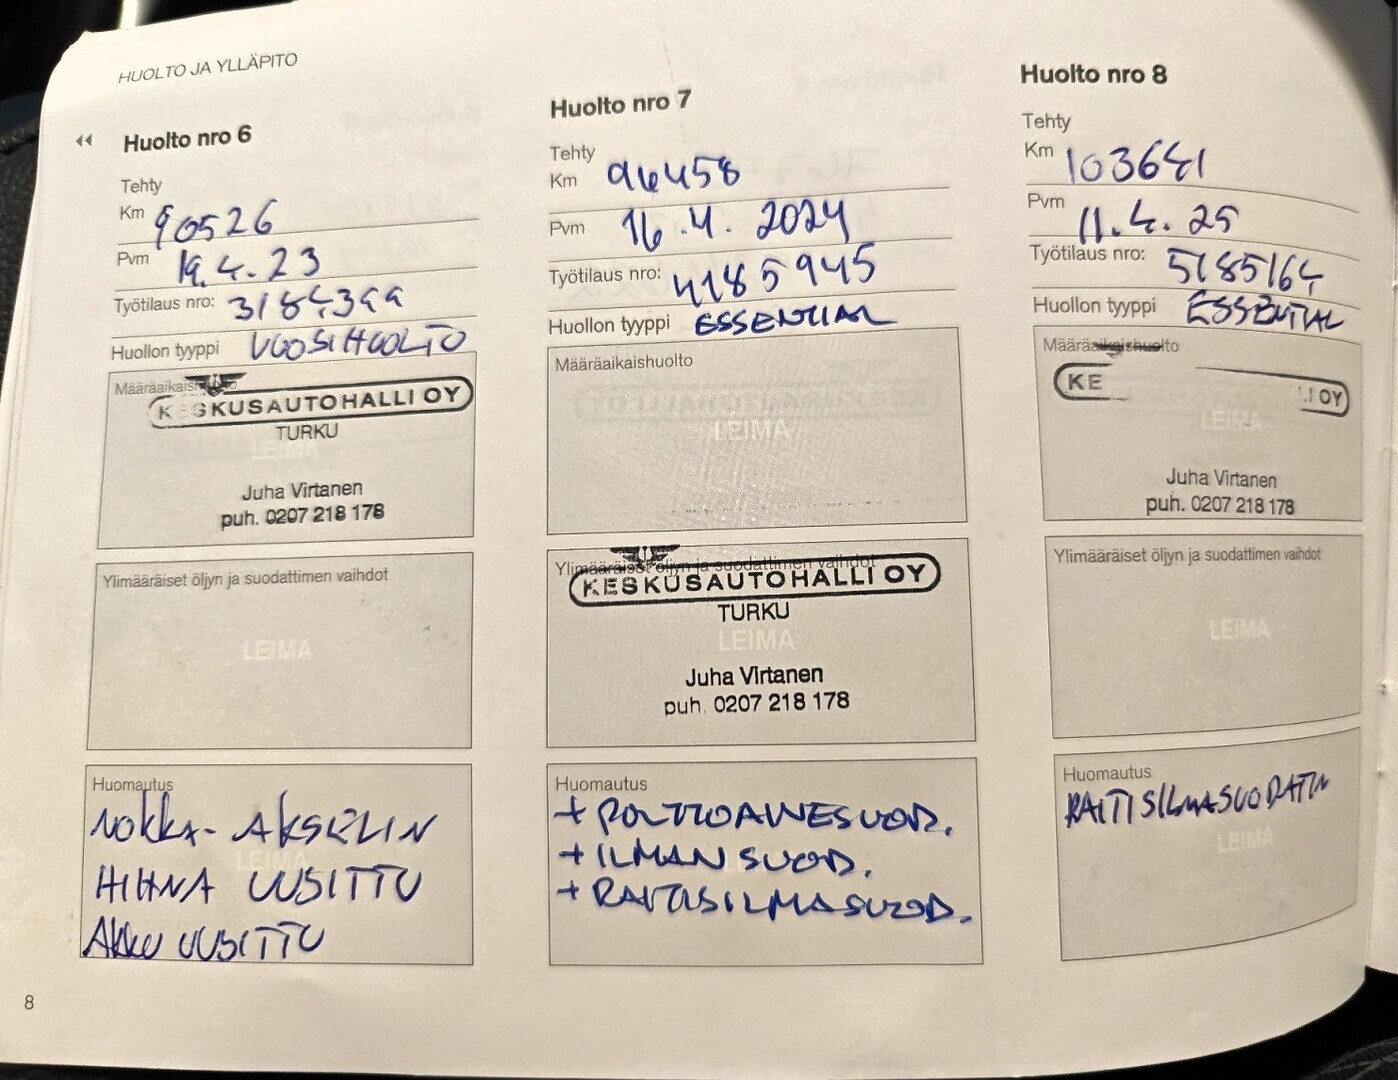 HUOLTO JA YLLÄPITO
Huolto nro 6
Tehty
Km 90526
Pvm 19.4.23
Työtilaus nro: 3184399
Huollon tyyppi VUOSIHUOLTO
Määräaikaishuolto
KESKUSAUTOHALLI OY
TURKU
LEIMA
Juha Virtanen
puh. 0207 218 178
Ylimääräiset öljyn ja suodattimen vaihdot
LEIMA
Huomautus
NOKKA-AKSELIN
LEIMA
HIHNA UUSITTU
AKKU UUSITTU
Huolto nro 7
Tehty
Km 96458
Pvm 16.4.2024
Työtilaus nro: 4185945
Huollon tyyppi ESSENTIAL
Määräaikaishuolto
LEIMA
Ylimääräiset öljyn ja suodattimen vaihdot
KESKUSAUTOHALLI OY
TURKU
LEIMA
Juha Virtanen
puh. 0207 218 178
Huomautus
+ POLTTOAINESUOD.
+ ILMANSUOD.
+ RAITISILMASUOD.
Huolto nro 8
Tehty
Km 103641
Pvm 11.4.25
Työtilaus nro: 5185164
Huollon tyyppi ESSENTIAL
Määräaikaishuolto
KE LI OY
LEIMA
Juha Virtanen
puh. 0207 218 178
Ylimääräiset öljyn ja suodattimen vaihdot
LEIMA
Huomautus
RAITISILMASUODATIN
LEIMA
8